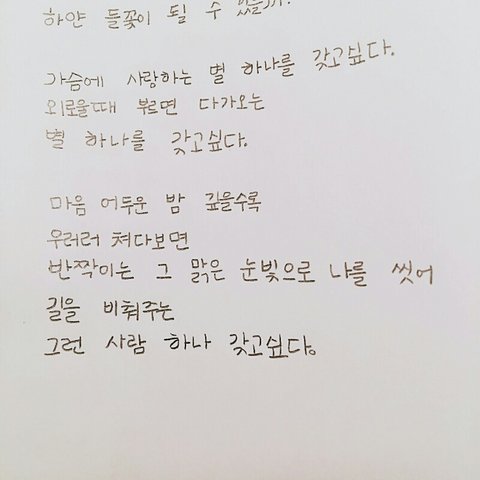 하얀 들꽃이 될 수 있을까.
가슴에 사랑하는 별 하나를 갖고싶다.
외로울때 부르면 다가오는
별 하나를 갖고싶다.
마음 어두운 밤 깊을수록
우러러 쳐다보면
반짝이는 그 맑은 눈빛으로 나를 씻어
길을 비춰주는
그런 사람 하나 갖고싶다.